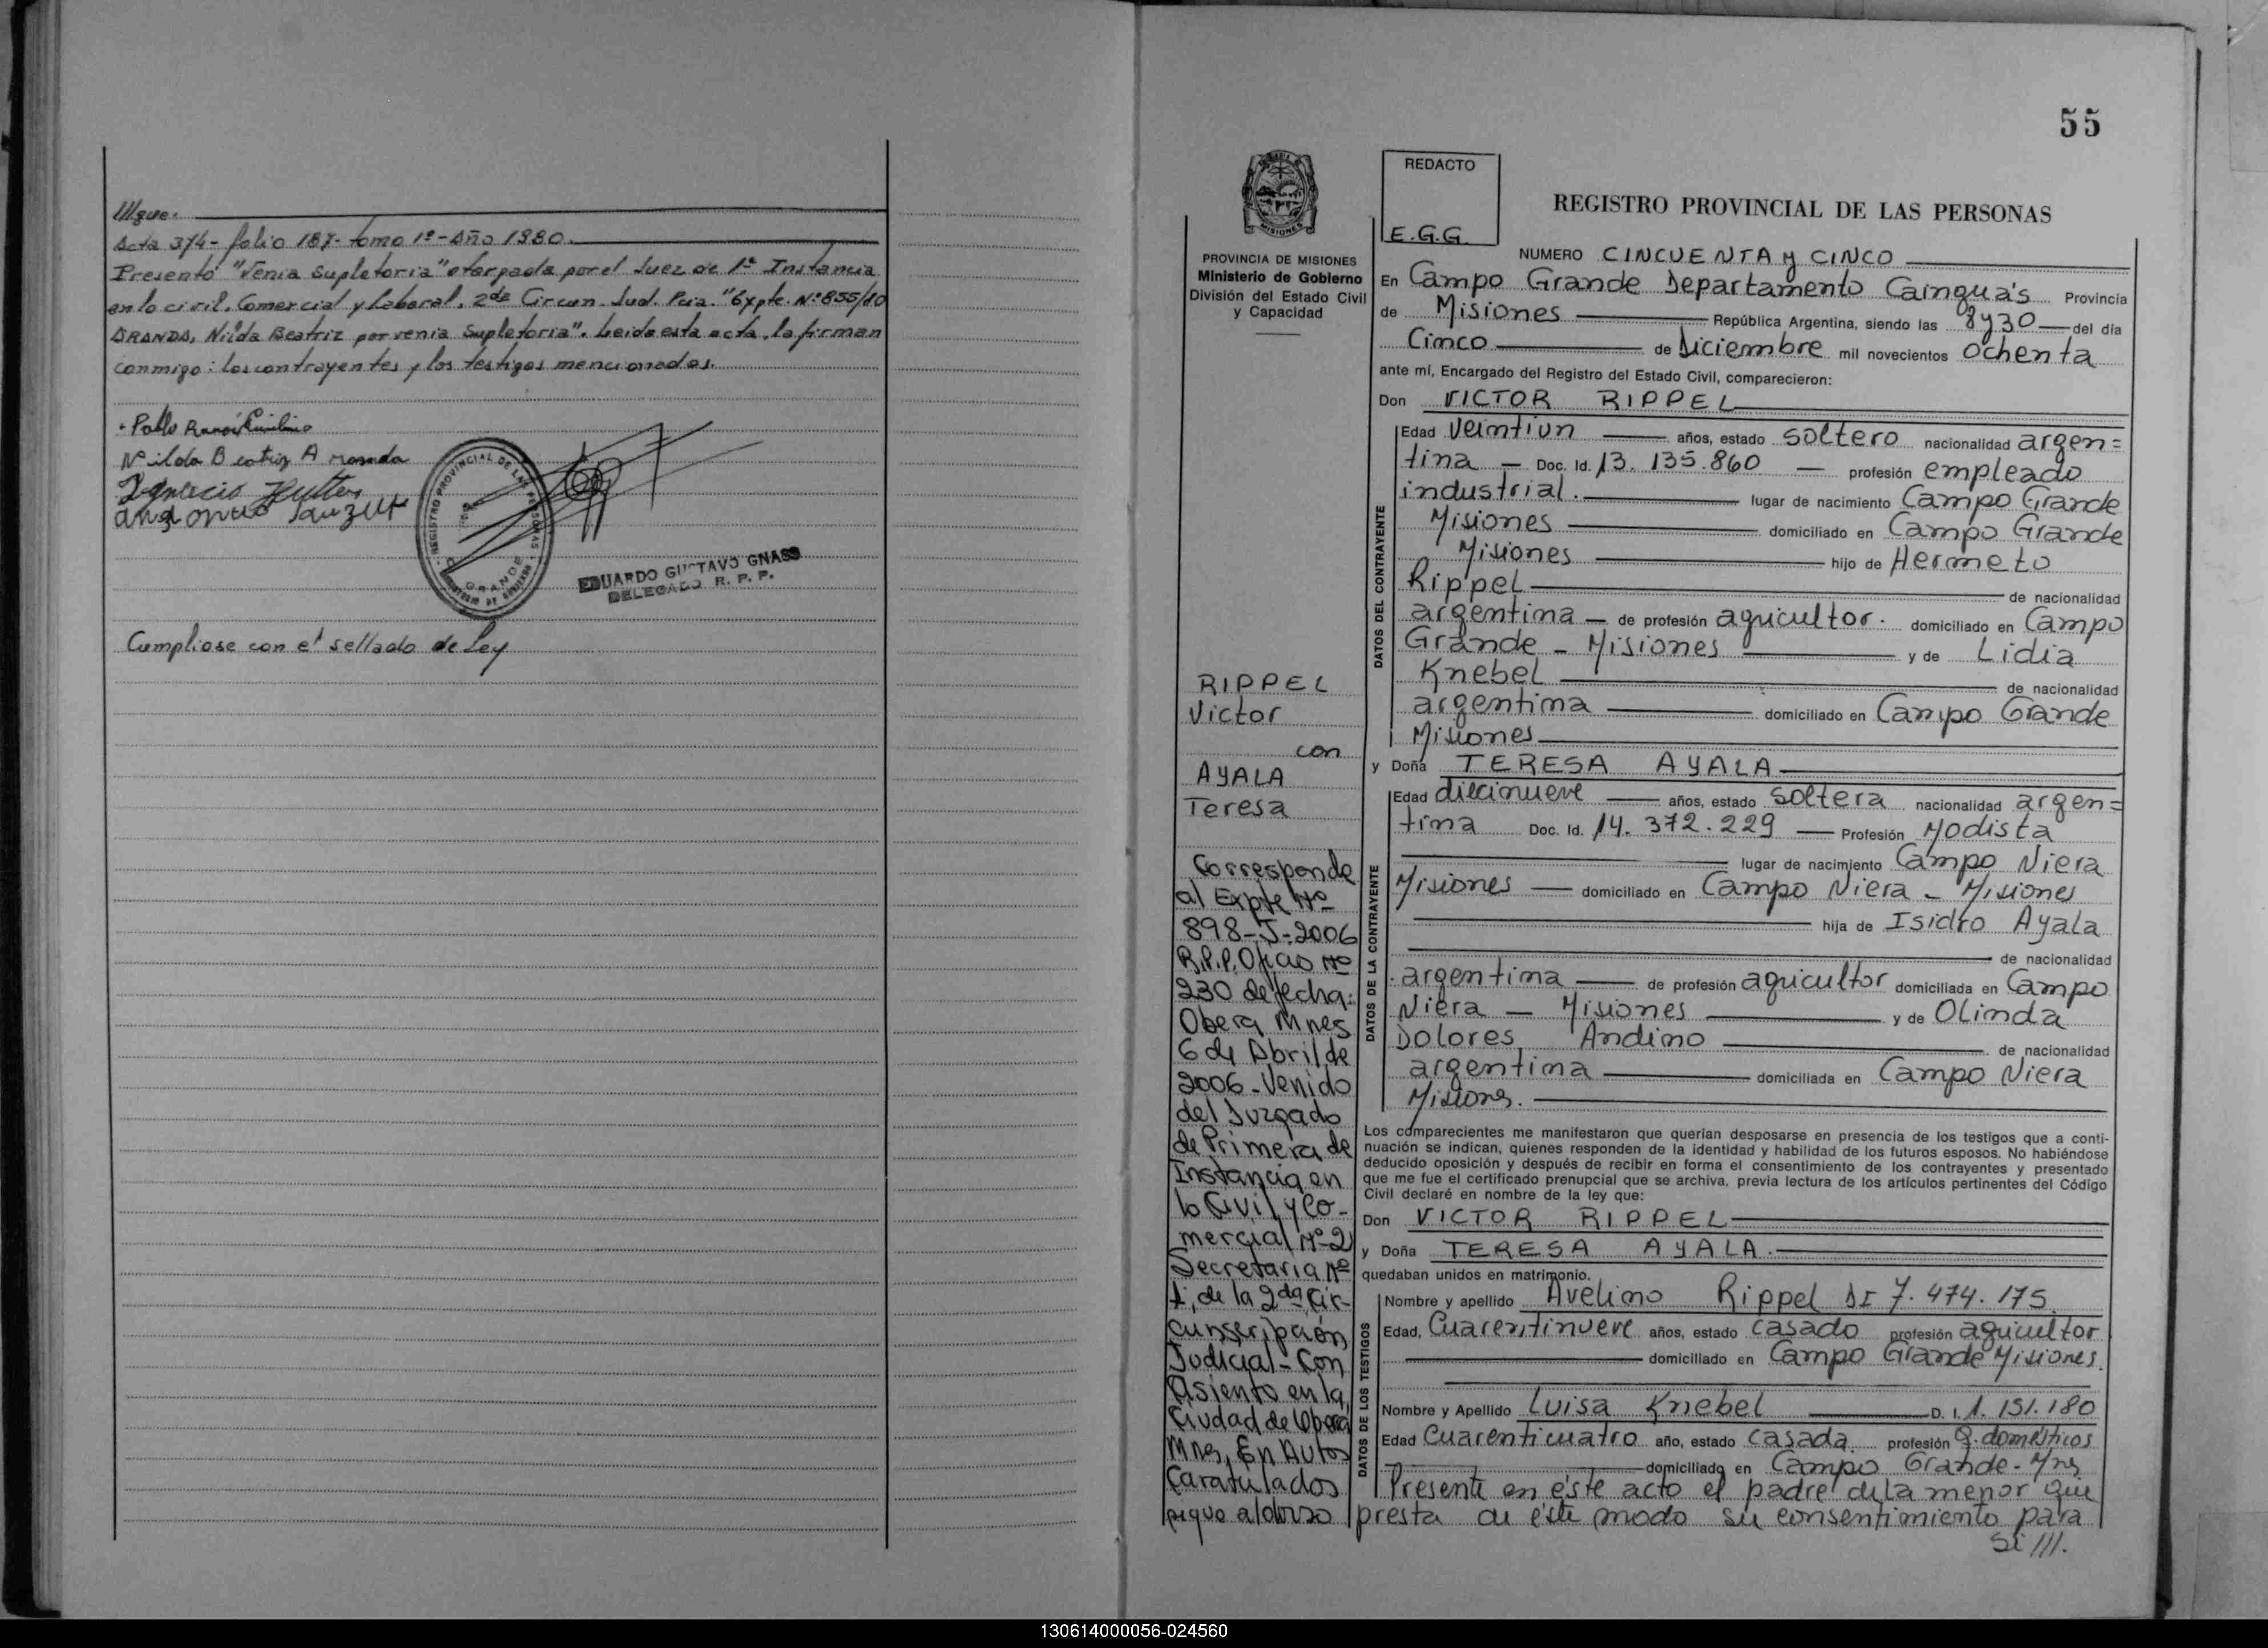 ///gue.
Acta 374- folio 187- tomo 1º- Año 1980.
Presentó "Venia Supletoria" otorgada por el Juez de 1ª Instancia
en lo civil, Comercial y Laboral, 2da Circun. Jud. Pcia. "Expte. Nº 855/80
ARANDA, Nilda Beatriz por venia Supletoria". Leida esta acta, la firman
conmigo: los contrayentes y los testigos mencionados.
Pablo Ramón
Nilda Beatriz A
Ignacio
REGISTRO PROVINCIAL DE LAS PERSONAS
GRANDE
EDUARDO GUSTAVO GNASS
DELEGADO R. P. P.
Cumpliose con el sellado de Ley
55
REDACTO
E.G.G.
REGISTRO PROVINCIAL DE LAS PERSONAS
PROVINCIA DE MISIONES
Ministerio de Gobierno
División del Estado Civil
y Capacidad
NUMERO CINCUENTA y CINCO
En Campo Grande Departamento Cainguás Provincia
de Misiones República Argentina, siendo las 8y30 del día
Cinco de Diciembre mil novecientos ochenta
ante mí, Encargado del Registro del Estado Civil, comparecieron:
Don VICTOR RIPPEL
DATOS DEL CONTRAYENTE
Edad Veintiun años, estado soltero nacionalidad argen=
tina Doc. Id. 13.135.860 profesión empleado
industrial. lugar de nacimiento Campo Grande
Misiones domiciliado en Campo Grande
Misiones hijo de Hermeto
Rippel de nacionalidad
argentina de profesión agricultor. domiciliado en Campo
Grande - Misiones y de Lidia
Knebel de nacionalidad
argentina domiciliado en Campo Grande
Misiones
y Doña TERESA AYALA
DATOS DE LA CONTRAYENTE
Edad diecinueve años, estado soltera nacionalidad argen=
tina Doc. Id. 14.372.229 Profesión Modista
lugar de nacimiento Campo Niera
Misiones domiciliado en Campo Niera - Misiones
hija de Isidro Ayala
de nacionalidad
argentina de profesión agricultor domiciliada en Campo
Niera - Misiones y de Olinda
Dolores Andino de nacionalidad
argentina domiciliada en Campo Niera
Misiones.
Los comparecientes me manifestaron que querían desposarse en presencia de los testigos que a conti-
nuación se indican, quienes responden de la identidad y habilidad de los futuros esposos. No habiéndose
deducido oposición y después de recibir en forma el consentimiento de los contrayentes y presentado
que me fue el certificado prenupcial que se archiva, previa lectura de los artículos pertinentes del Código
Civil declaré en nombre de la ley que:
Don VICTOR RIPPEL
y Doña TERESA AYALA.
quedaban unidos en matrimonio.
DATOS DE LOS TESTIGOS
Nombre y apellido Avelino Rippel DI 7.474.175
Edad, Cuarentinueve años, estado casado profesión agricultor
domiciliado en Campo Grande Misiones.
Nombre y Apellido Luisa Knebel D. I. 1.151.180
Edad Cuarenticuatro año, estado casada profesión Q. domésticos
domiciliada en Campo Grande - Mns
Presente en éste acto el padre de la menor que
presta de éste modo su consentimiento para
si ///.
RIPPEL
Victor
con
AYALA
Teresa
Corresponde
al Expte Nº
898-J-2006
R.P.P. Oficio Nº
230 de fecha:
Obera Mnes
6 de Abril de
2006 - Venido
del Juzgado
de Primera de
Instancia en
lo Civil y Co-
mercial Nº 2
Secretaria Nº
1, de la 2da Cir-
cunscripción
Judicial - Con
Asiento en la
Ciudad de Obera
Mns, En Autos
Caratulados
sigue al dorso
130614000056-024560